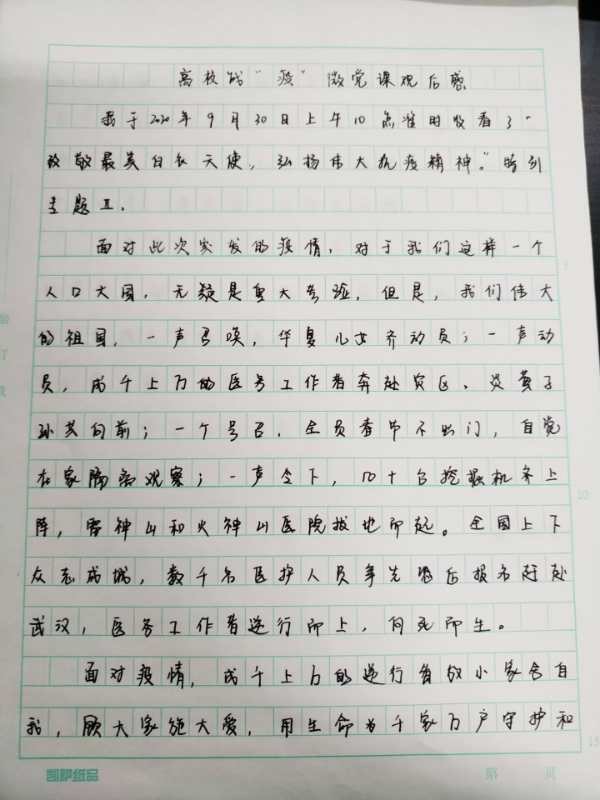 高校战“疫”微党课观后感
我于2020年9月30日上午10点准时收看了“
致敬最美白衣天使，弘扬伟大抗疫精神。”特别
专题Ⅱ.
面对此次突发的疫情，对于我们这样一个
人口大国，无疑是重大考验，但是，我们伟大
的祖国，一声召唤，华夏儿女齐动员；一声动
员，成千上万的医务工作者奔赴灾区、炎黄子
孙共向前；一个号召，全员春节不出门，自觉
在家隔离观察；一声令下，几十台挖掘机齐上
阵，雷神山和火神山医院拔地而起。全国上下
众志成城，数千名医护人员争先恐后报名赶赴
武汉，医务工作者逆行而上，向死而生。
面对疫情，成千上万的逆行者放小家舍自
我，顾大家施大爱，用生命为千家万户守护和
凯萨纸品
第 页
10
15